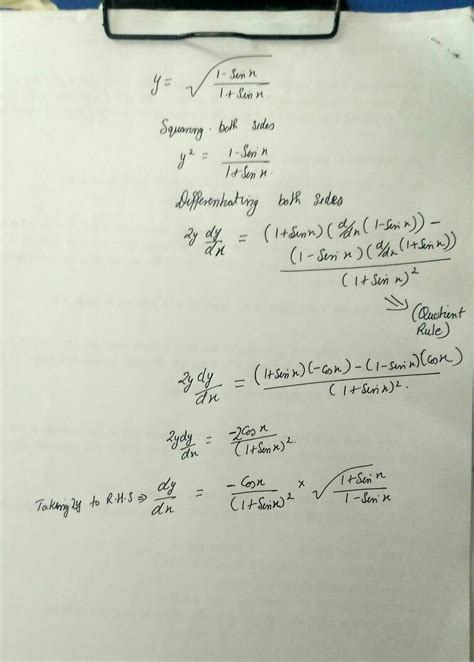 y = √((1 - Sin x)/(1 + Sin x))
Squaring both sides
y² = (1 - Sin x)/(1 + Sin x)
Differentiating both sides
2y dy/dx = ((1 + Sin x)(d/dx(1 - Sin x)) - (1 - Sin x)(d/dx(1 + Sin x)))/(1 + Sin x)²
(Quotient
Rule)
2y dy/dx = ((1 + Sin x)(-Cos x) - (1 - Sin x)(Cos x))/(1 + Sin x)²
2y dy/dx = -2Cos x/(1 + Sin x)²
Taking 2y to R.H.S ⇒ dy/dx = -Cos x/(1 + Sin x)² × √((1 + Sin x)/(1 - Sin x))